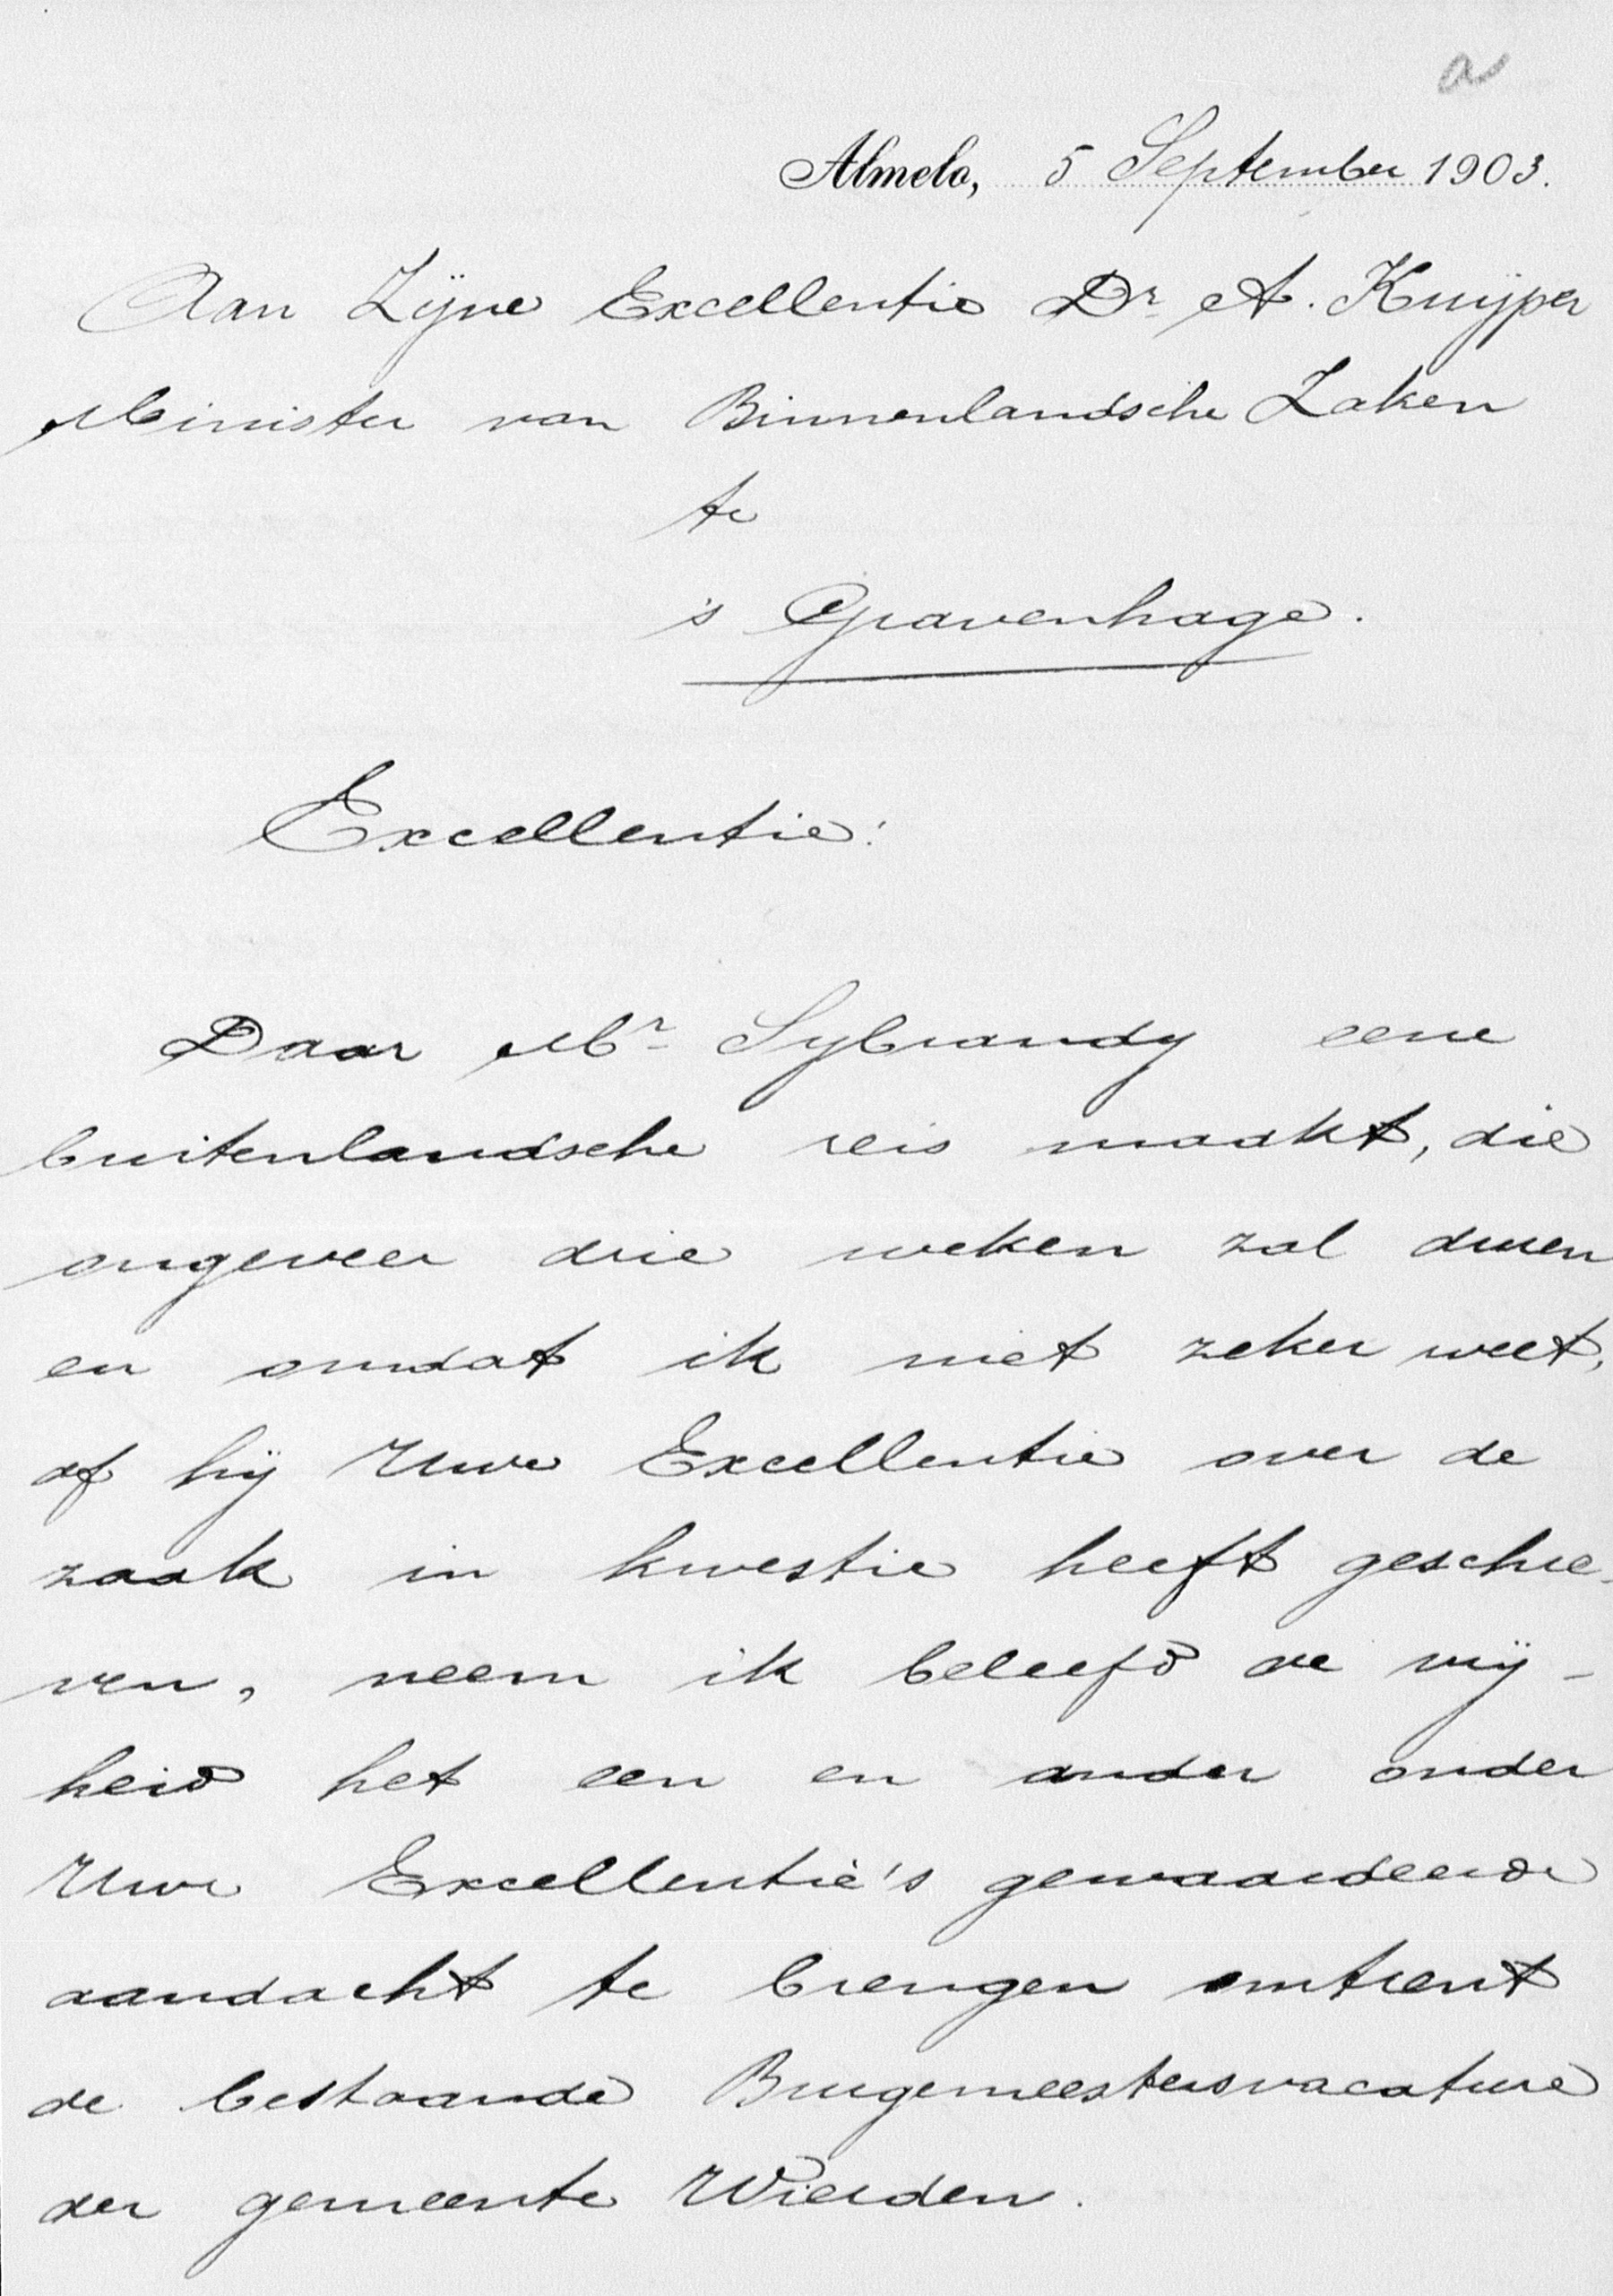 a
Almelo, 5 September 1903.
Aan Zijne Excellentie Dr. A. Kuijper
Minister van Binnenlandsche Zaken
te
's Gravenhage.
Excellentie!
Daar Mr. Sybrandy eene
buitenlandsche reis maakt, die
ongeveer drie weken zal duren
en omdat ik niet zeker weet,
of hij Uwe Excellentie over de
zaak in kwestie heeft geschre-
ven, neem ik beleefd de vrij-
heid het een en ander onder
Uwe Excellentie's gewaardeerde
aandacht te brengen omtrent
de bestaande Burgemeestersvacature
der gemeente Wierden.